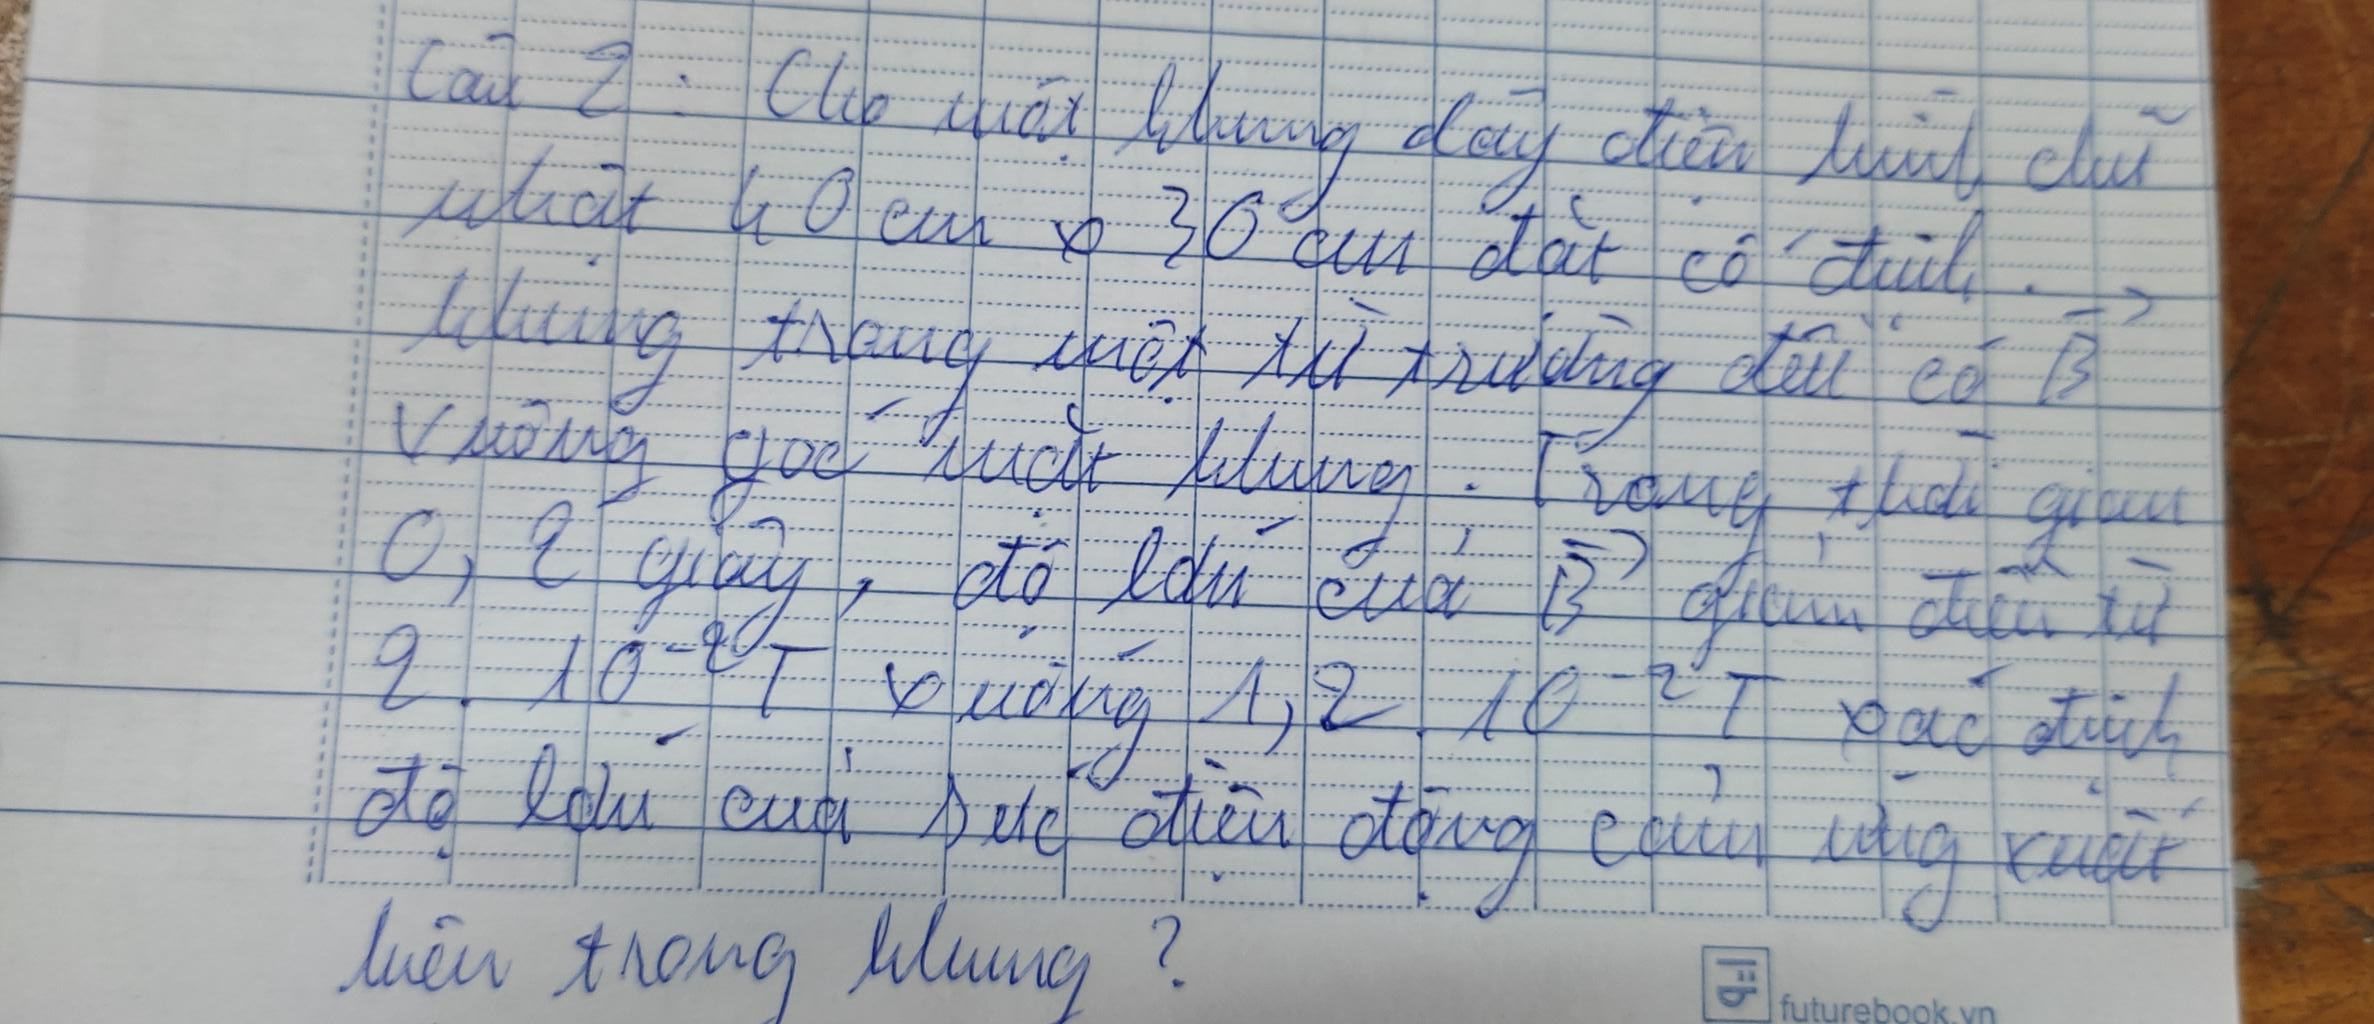 Câu 2 : Cho một khung dây điện hình chữ
nhật 40 cm x 30 cm đặt cố định.
khung trong một từ trường đều có B⃗
vuông góc mặt khung. Trong thời gian
0, 2 giây, độ lớn của B⃗ giảm đều từ
2. 10⁻²T xuống 1,2. 10⁻²T xác định
độ lớn của suất điện động cảm ứng xuất
hiện trong khung ?
futurebook.vn